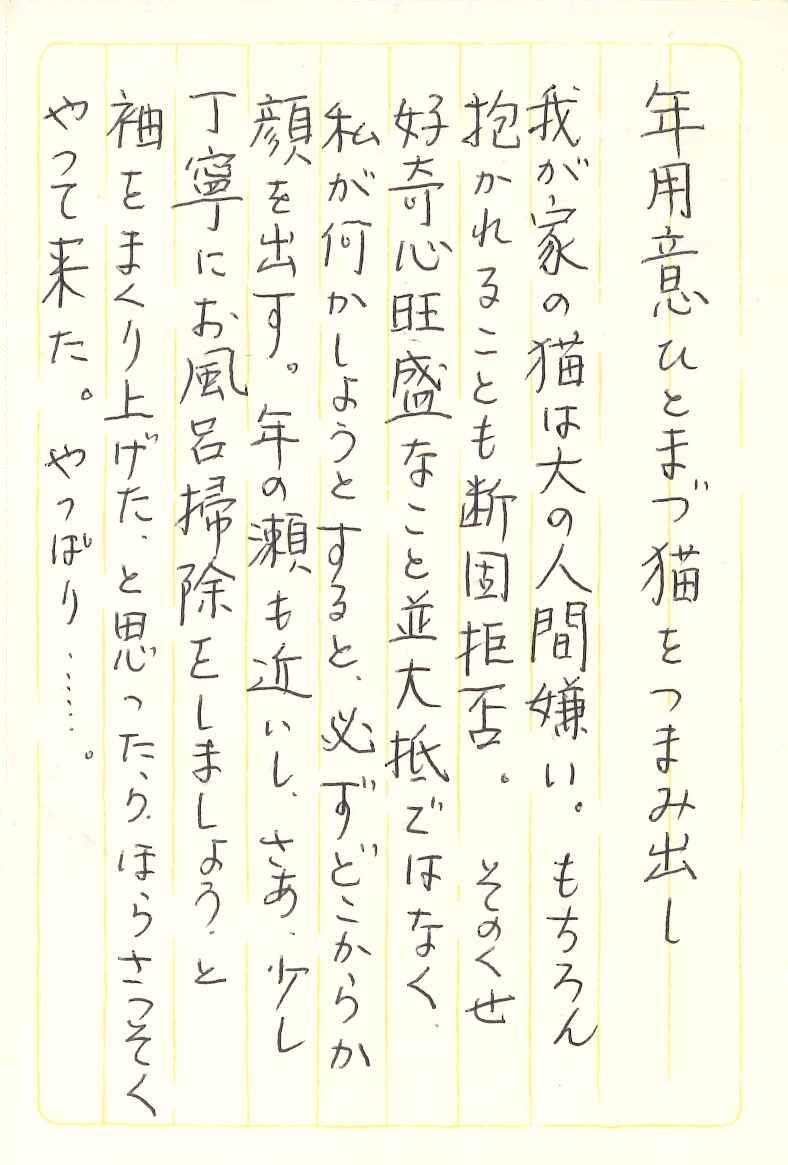 年用意ひとまづ猫をつまみ出し
我が家の猫は大の人間嫌い。もちろん
抱かれることも断固拒否。そのくせ
好奇心旺盛なこと並大抵ではなく、
私が何かしようとすると、必ずどこからか
顔を出す。年の瀬も近いし、さあ、少し
丁寧にお風呂掃除をしましょう、と
袖をまくり上げた、と思ったら、ほらさっそく
やって来た。やっぱり……。